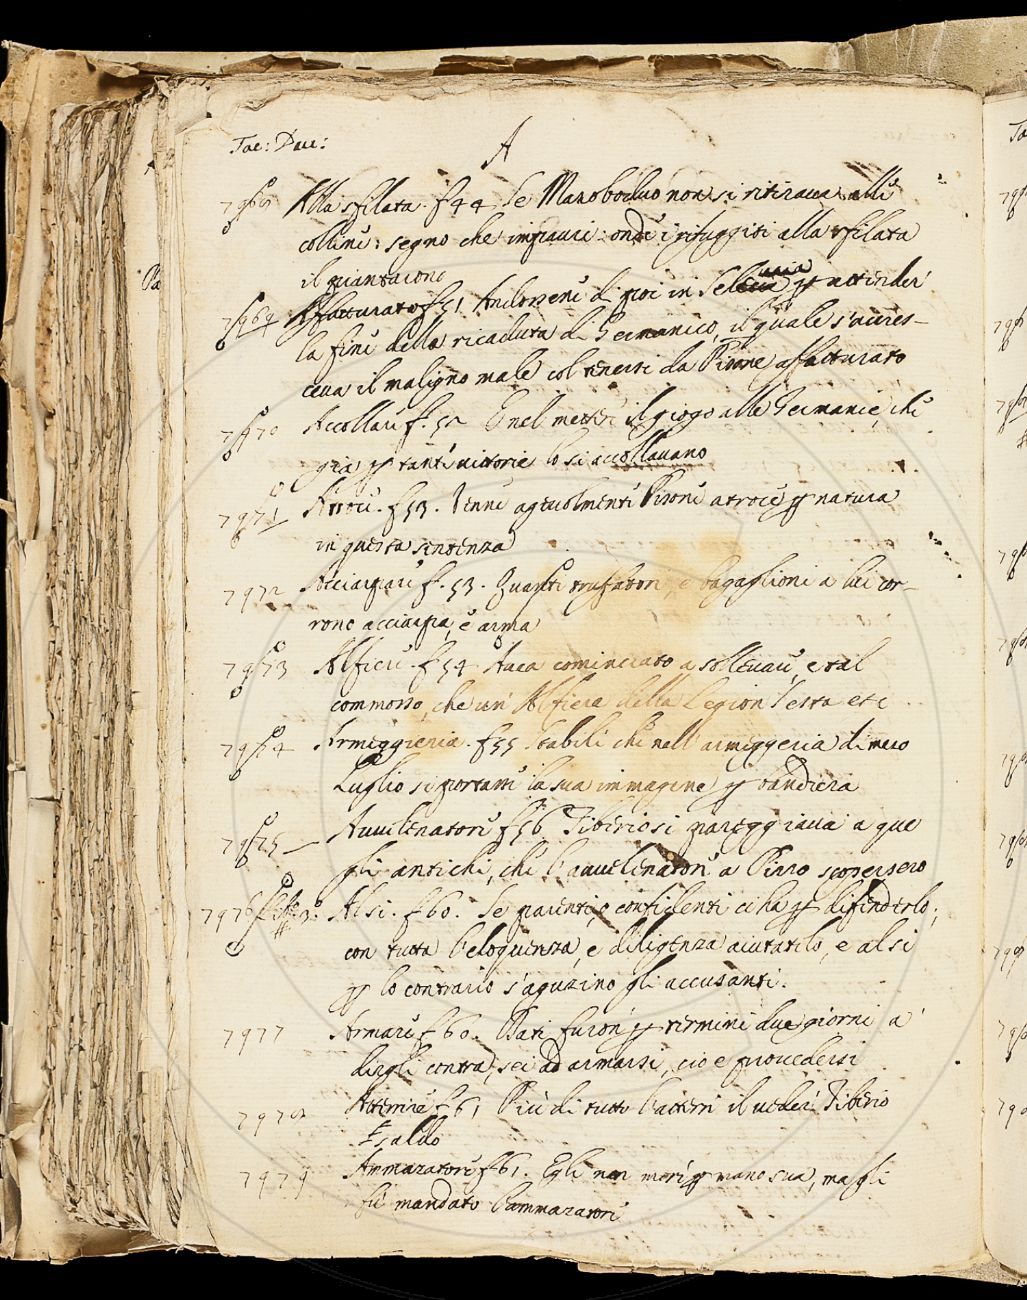 Tac: Dav:
A
7968 Alla sfilata. f 44 Se Maroboduo non si ritirava alli
collini, segno che impauri: onde i rifuggiti alla sfilata
il piantarono
7969 Affatturato f 51 Andossene di poi in Seleucia per attender
la fine della ricaduta di Germanico, il quale s'accres-
ceva il maligno male col tenersi da Pisone affatturato
7970 Accollare f. 52 E nel metter il giogo alle Germanie, che
già per tante vittorie lo si accollavano
7971 Atroce. f 53. Venne agevolmente Pisone atroce per natura
in questa sentenza
7972 Acciarpare f. 53. Quanti truffatori, e bagaglioni a lui cor-
rono acciarpa, e arma
7973 Alfiere. f 54 Avea cominciato a sollevare, e tal
commosso, che un' Alfiere della Legion Sesta etc
7974 Armeggieria. f 55 Stabili che nell' armeggeria di mezo
Luglio si portasse la sua immagine per bandiera
7975 Avvelenatore f 56 Tiberio si pareggiava a que
gli antichi, che l'avvelenatore a Pirro scopersero
7976 Alsi. f 60. Se parenti, o confidenti ci ha per difenderlo;
con tutta l'eloquenza, e diligenza aiutatelo, e alsi
per lo contrario s'aguzzino gli accusanti.
7977 Armare f 60. Dati furon per termine due giorni a
dirgli contra, sei ad armarsi, cioè provedersi
7978 Atterrire f 61 Più di tutto l'atterrì il veder Tiberio
saldo
7979 Ammazatore f 61. Egli non morì per mano sua, ma gli
fù mandato l'ammazatore